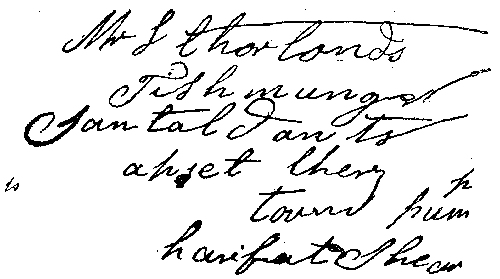 Mr S thorlonds
Fishmunger
Santaldants
apset thery
town pump
harifat Shear